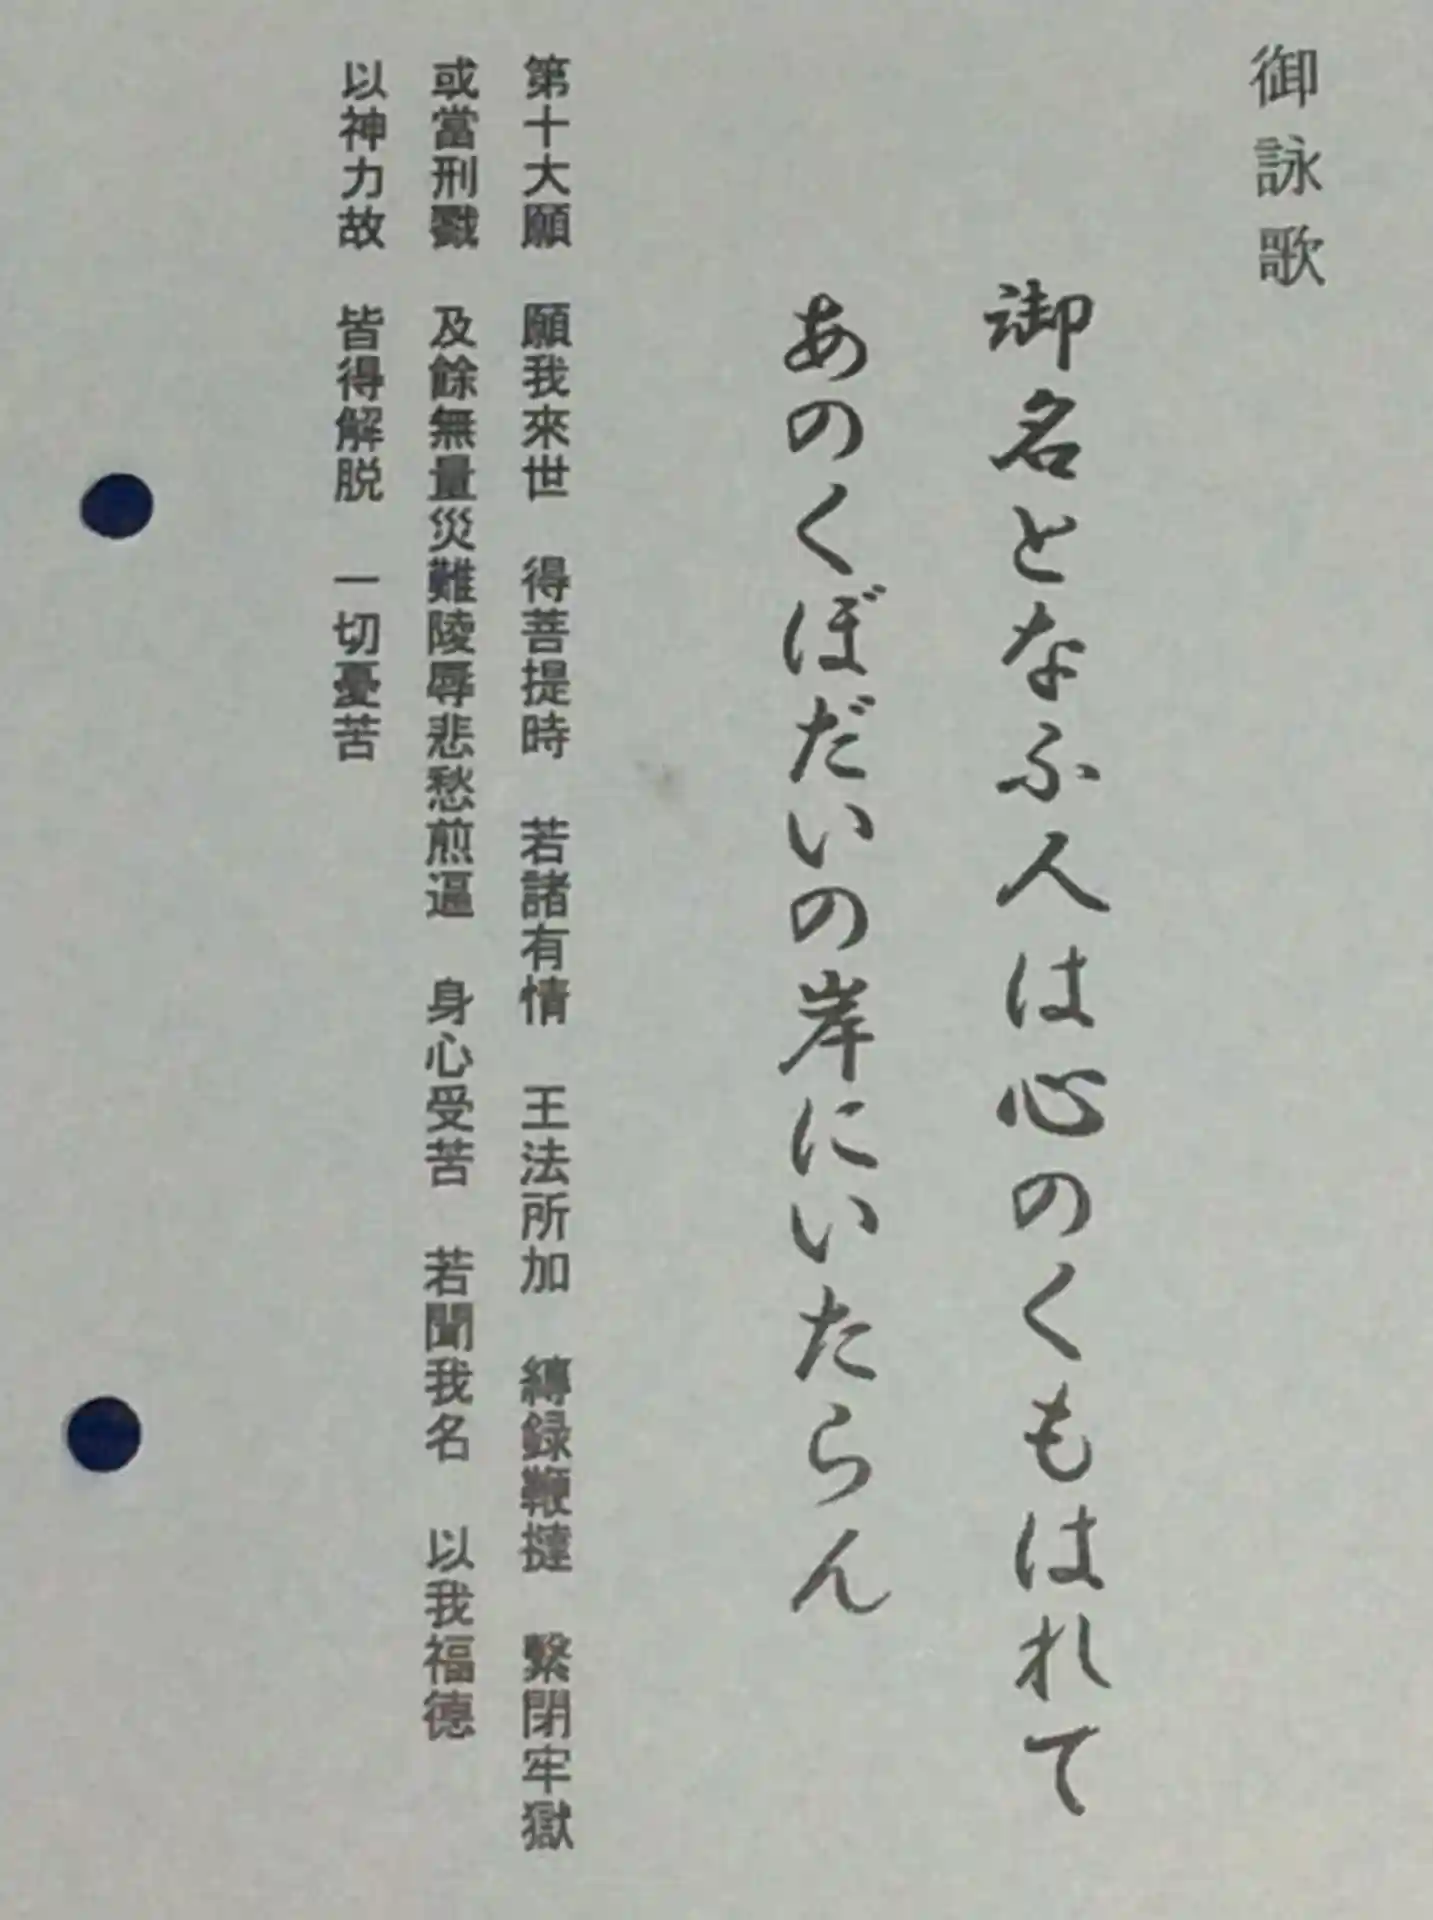 御詠歌
御名となふ人は心のくもはれて
あのくぼだいの岸にいたらん
第十大願　願我來世　得菩提時　若諸有情　王法所加　縛録鞭撻　繋閉牢獄
或當刑戮　及餘無量災難陵辱悲愁煎逼　身心受苦　若聞我名　以我福德
以神力故　皆得解脱　一切憂苦